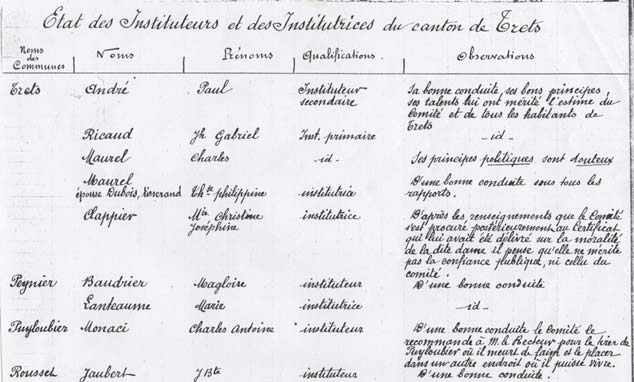 Etat des Instituteurs et des Institutrices du canton de Trets
Noms des Communes Noms Prénoms Qualifications Observations
Trets André Paul Instituteur secondaire Sa bonne conduite, ses bons principes, ses talents lui ont mérité l'estime du Comité et de tous les habitants de Trets
Ricaud Jh Gabriel Inst. primaire -id-
Maurel Charles -id- Ses principes politiques sont douteux
Maurel épouse Dubois, Vénérand Thse philippine institutrice D'une bonne conduite sous tous les rapports.
Clappier Mie Christine Joséphine institutrice D'après les renseignements que le Comité s'est procuré postérieurement au Certificat qui lui avait été délivré sur la moralité de la dite dame il pense qu'elle ne mérite pas la confiance publique, ni celui du comité.
Peynier Baudrier Magloire instituteur D'une bonne conduite
Lanteaume Marie institutrice -id-
Puyloubier Monaci Charles Antoine instituteur D'une bonne conduite le Comité le recommande à M. le Recteur pour le tirer de Puyloubier où il meurt de faim et le placer dans un autre endroit où il puisse vivre.
Rousset Jaubert J Bte instituteur D'une bonne conduite